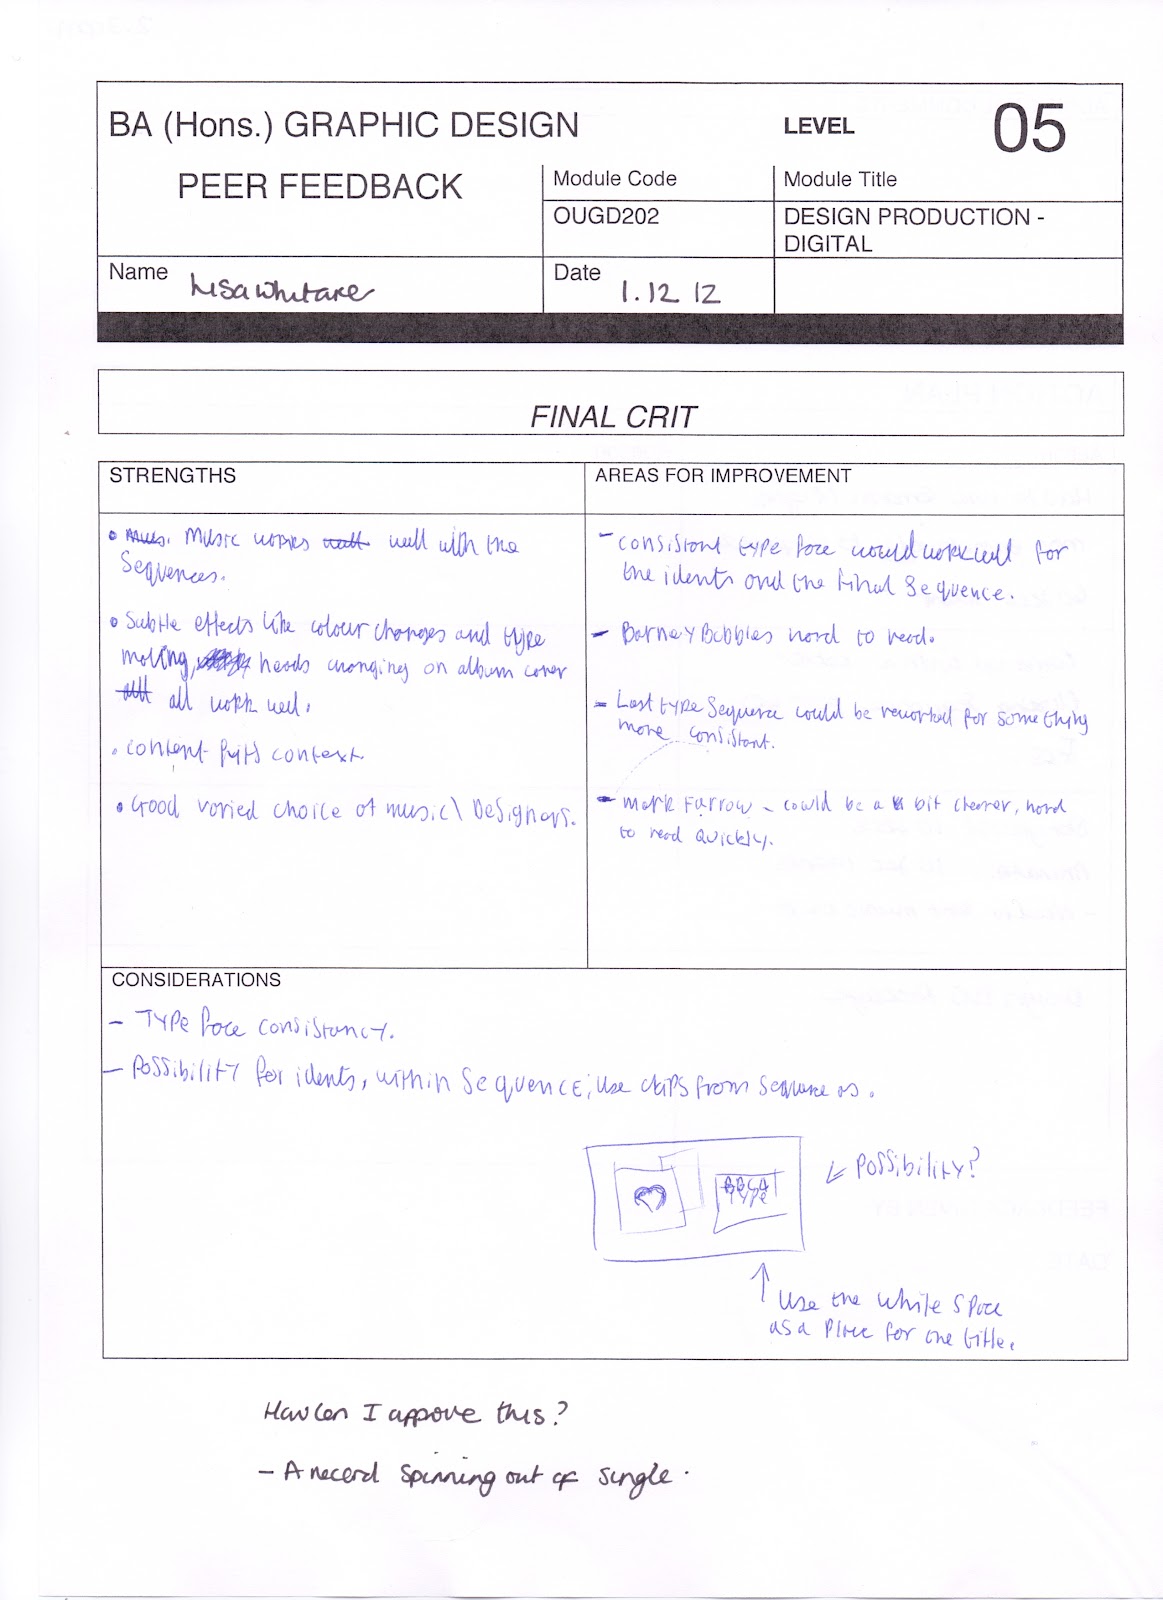 BA (Hons.) GRAPHIC DESIGN
LEVEL 05
PEER FEEDBACK
Module Code
Module Title
OUGD202
DESIGN PRODUCTION -
DIGITAL
Name Lisa Whitaker
Date 1.12 12
FINAL CRIT
STRENGTHS
• Music works well with the
Sequences.
• Subtle effects like colour changes and type
moving, heads changing on album cover
all work well.
• Content fits context.
• Good varied choice of music \ Designers.
AREAS FOR IMPROVEMENT
- consistant type face would work well for
the idents and the final Sequence.
- Barney Bubbles hard to read.
- Last type Sequence could be reworked for something
more consistant.
- Mark Farrow - could be a bit clearer, hard
to read quickly.
CONSIDERATIONS
- Type face consistancy.
- Possibility for idents, within Sequence; use clips from sequence as.
TYPE
Possibility?
Use the white space
as a place for the title.
How can I approve this?
- A record spinning out of single.